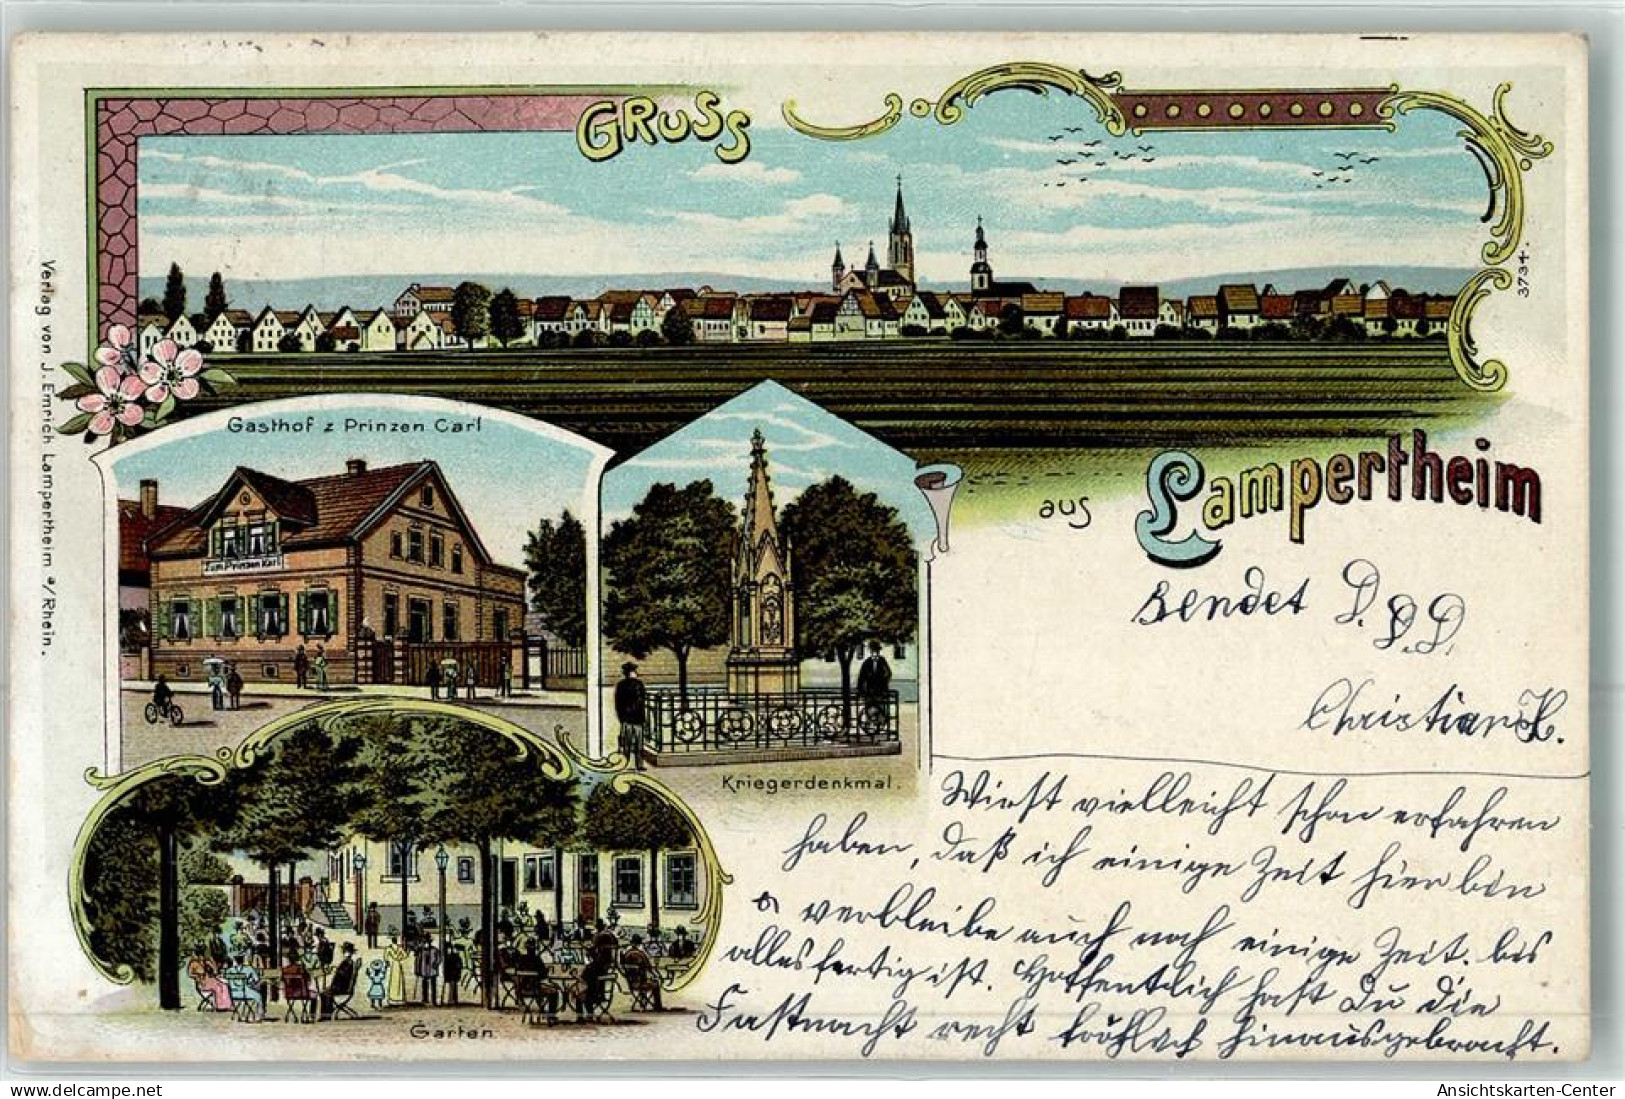 GRUSS
3734.
Verlag von J. Emrich Lampertheim a/Rhein.
Gasthof z Prinzen Carl
Zum Prinzen Karl
aus Lampertheim
sendet D.
D.D.
Christian H.
Kriegerdenkmal.
Wirst vielleicht schon erfahren
haben, daß ich einige Zeit hier bin
verbleibe auch noch einige Zeit. bis
alles fertig ist. Hoffentlich hast Du die
Fastnacht recht fröhlich hinausgebracht.
Garten
www.ansichtskartenversand.com
Ansichtskarten-Center